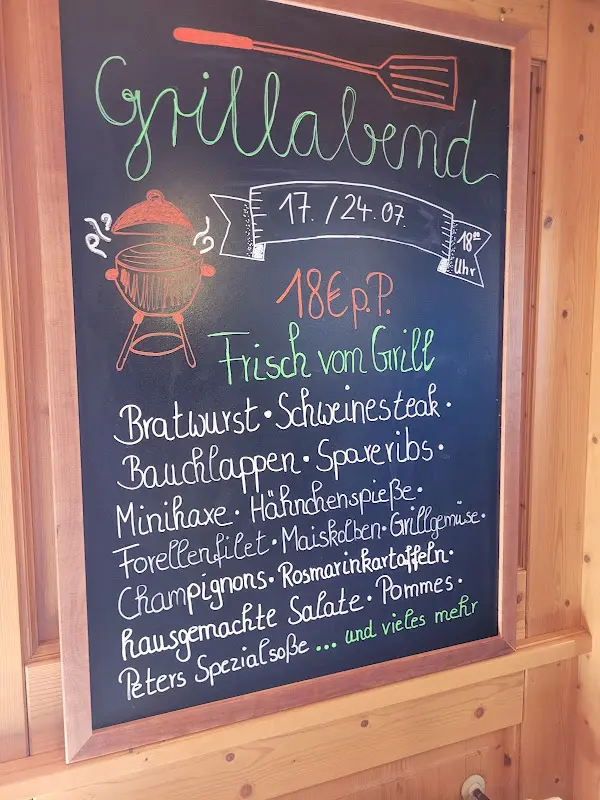 Grillabend
17. / 24.07.
18⁰⁰
Uhr
18€ p.P.
Frisch vom Grill
Bratwurst • Schweinesteak •
Bauchlappen • Spareribs •
Minihaxe • Hähnchenspieße •
Forellenfilet • Maiskolben • Grillgemüse •
Champignons • Rosmarinkartoffeln •
hausgemachte Salate • Pommes •
Peters Spezialsoße ... und vieles mehr